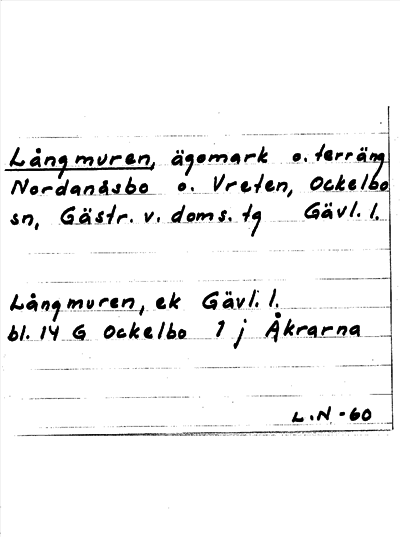 Långmuren, ägomark o. terräng
Nordanåsbo o. Vreten, Ockelbo
sn, Gästr. v. doms. tg Gävl. l.
Långmuren, ek Gävl. l.
bl. 14 G Ockelbo 1 j Åkrarna
L.N-60